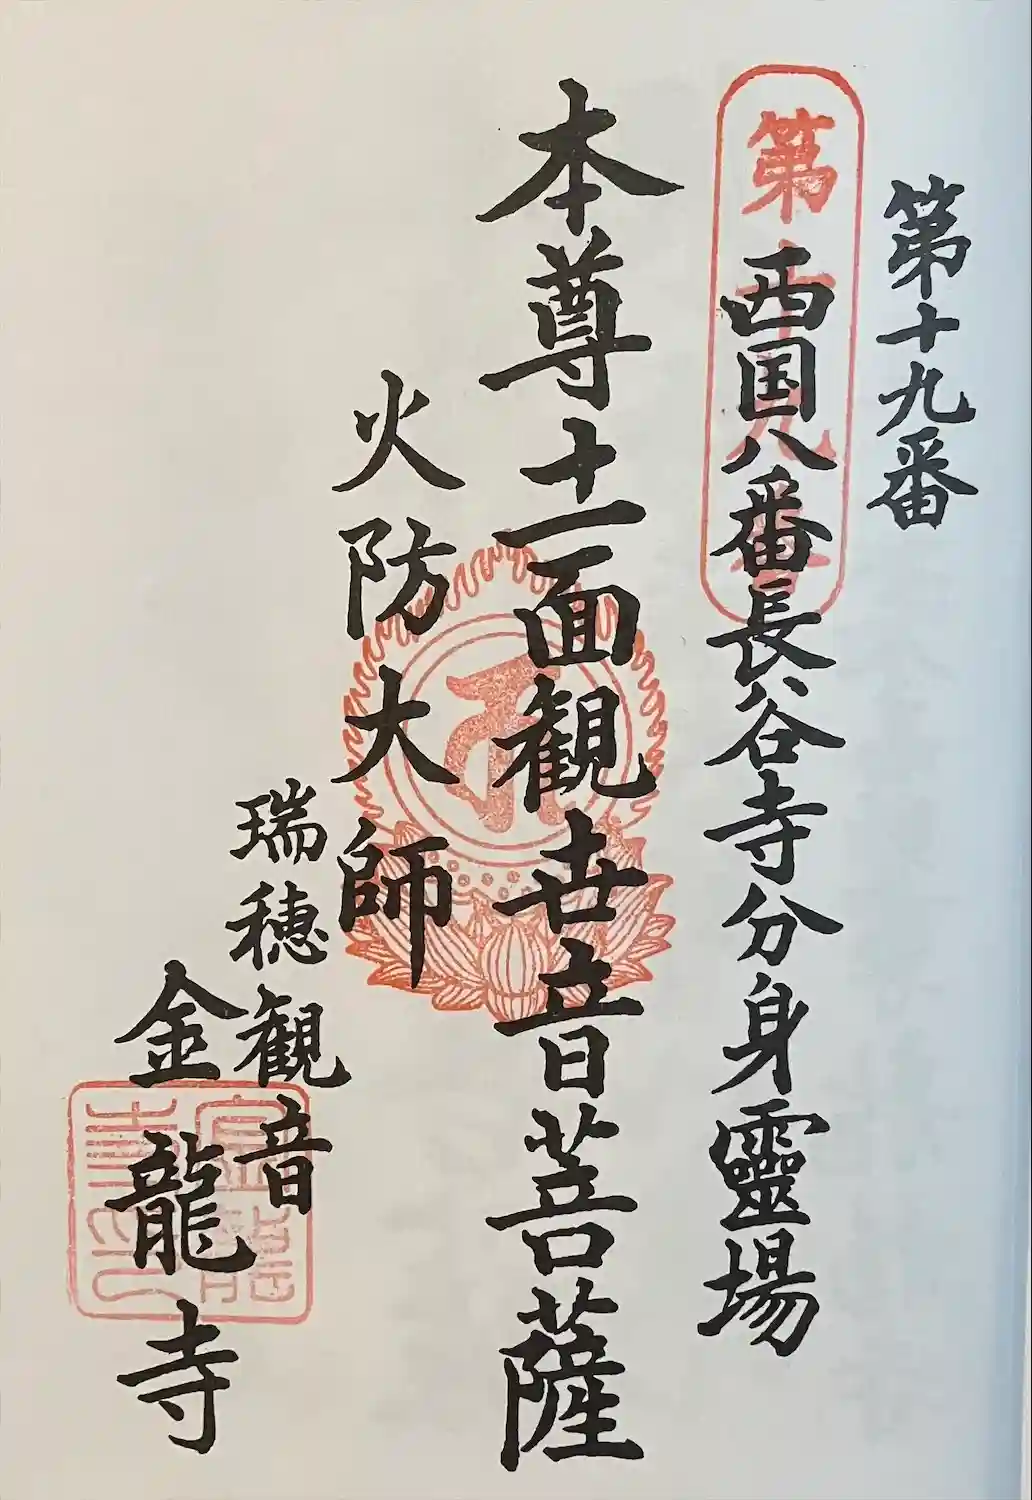 第十九番
第十九番
西国八番長谷寺分身靈場
本尊十一面観世音菩薩
火防大師
瑞穂観音
金龍寺
金龍寺印